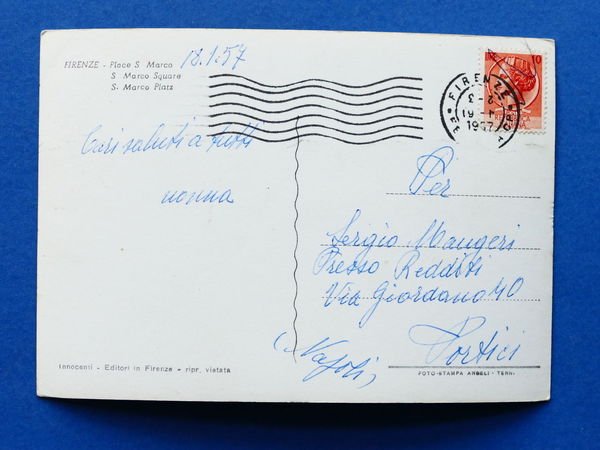 FIRENZE - Place S Marco
S Marco Square
S. Marco Platz
18.1.57
Cari saluti a tutti
nonna
10
FIRENZE
1957
Per
Sergio Maugeri
Presso Redditi
Via Giordano 40
Portici
(Napoli)
Innocenti - Editori in Firenze - ripr. vietata
FOTO-STAMPA ANGELI - TERNI